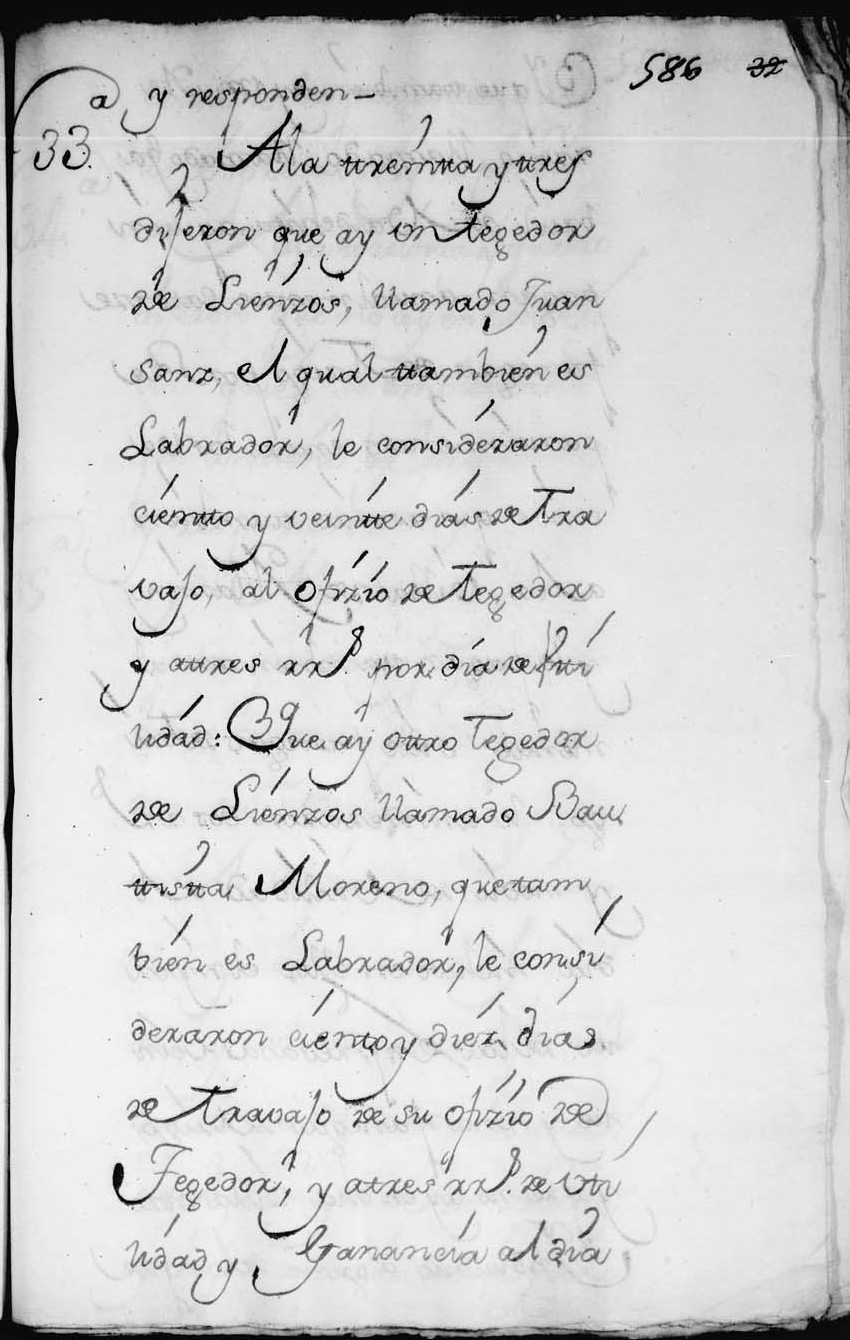 586 32
a y responden_
33. A la ttreintta y ttres
dijeron que ay vn tegedor
de Lienzos, llamado Juan
Sanz, el qual ttambien es
Labrador, le consideraron
cientto y veintte dias de tra
vajo, al ofizio de tegedor
y a ttres rrs. por dia de utti
lidad: Que ay ottro tegedor
de Lienzos llamado Bau
ttistta Moreno, que tam
bien es Labrador, le consi
deraron ciento y diez dias
de travajo de su ofizio de
Tegedor, y a tres rrs. de uti
lidad y Ganancia al dia